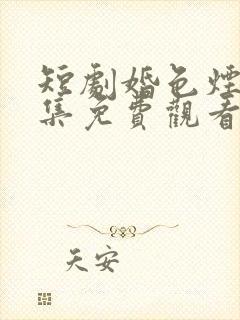 短劇婚色煙
集免費觀看
天安